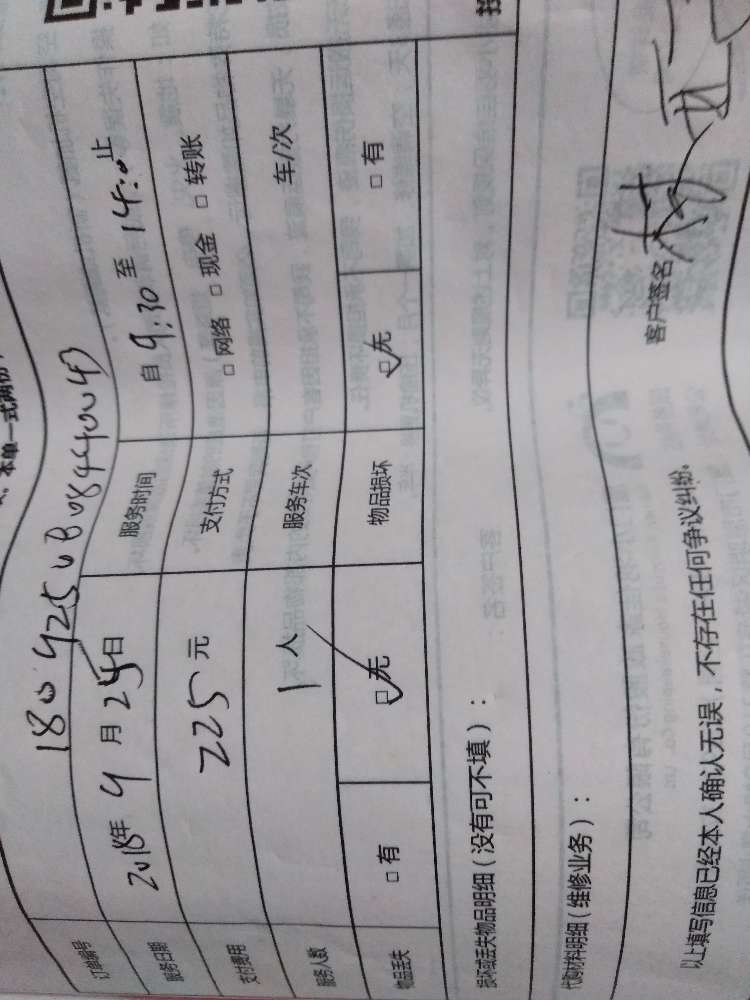 、本单一式两份，
订单编号
服务日期 2018年 9 月 25 日 服务时间 自 9:30 至 14:00 止
支付费用 225 元 支付方式 □ 网络 □ 现金 □ 转账
服务人数 1 人 服务车次 车/次
物品丢失 □ 有 □ 无 物品损坏 □ 无 □ 有
损坏或丢失物品明细（没有可不填）：
代购材料明细（维修业务）：
客户签名
以上填写信息已经本人确认无误，不存在任何争议纠纷。